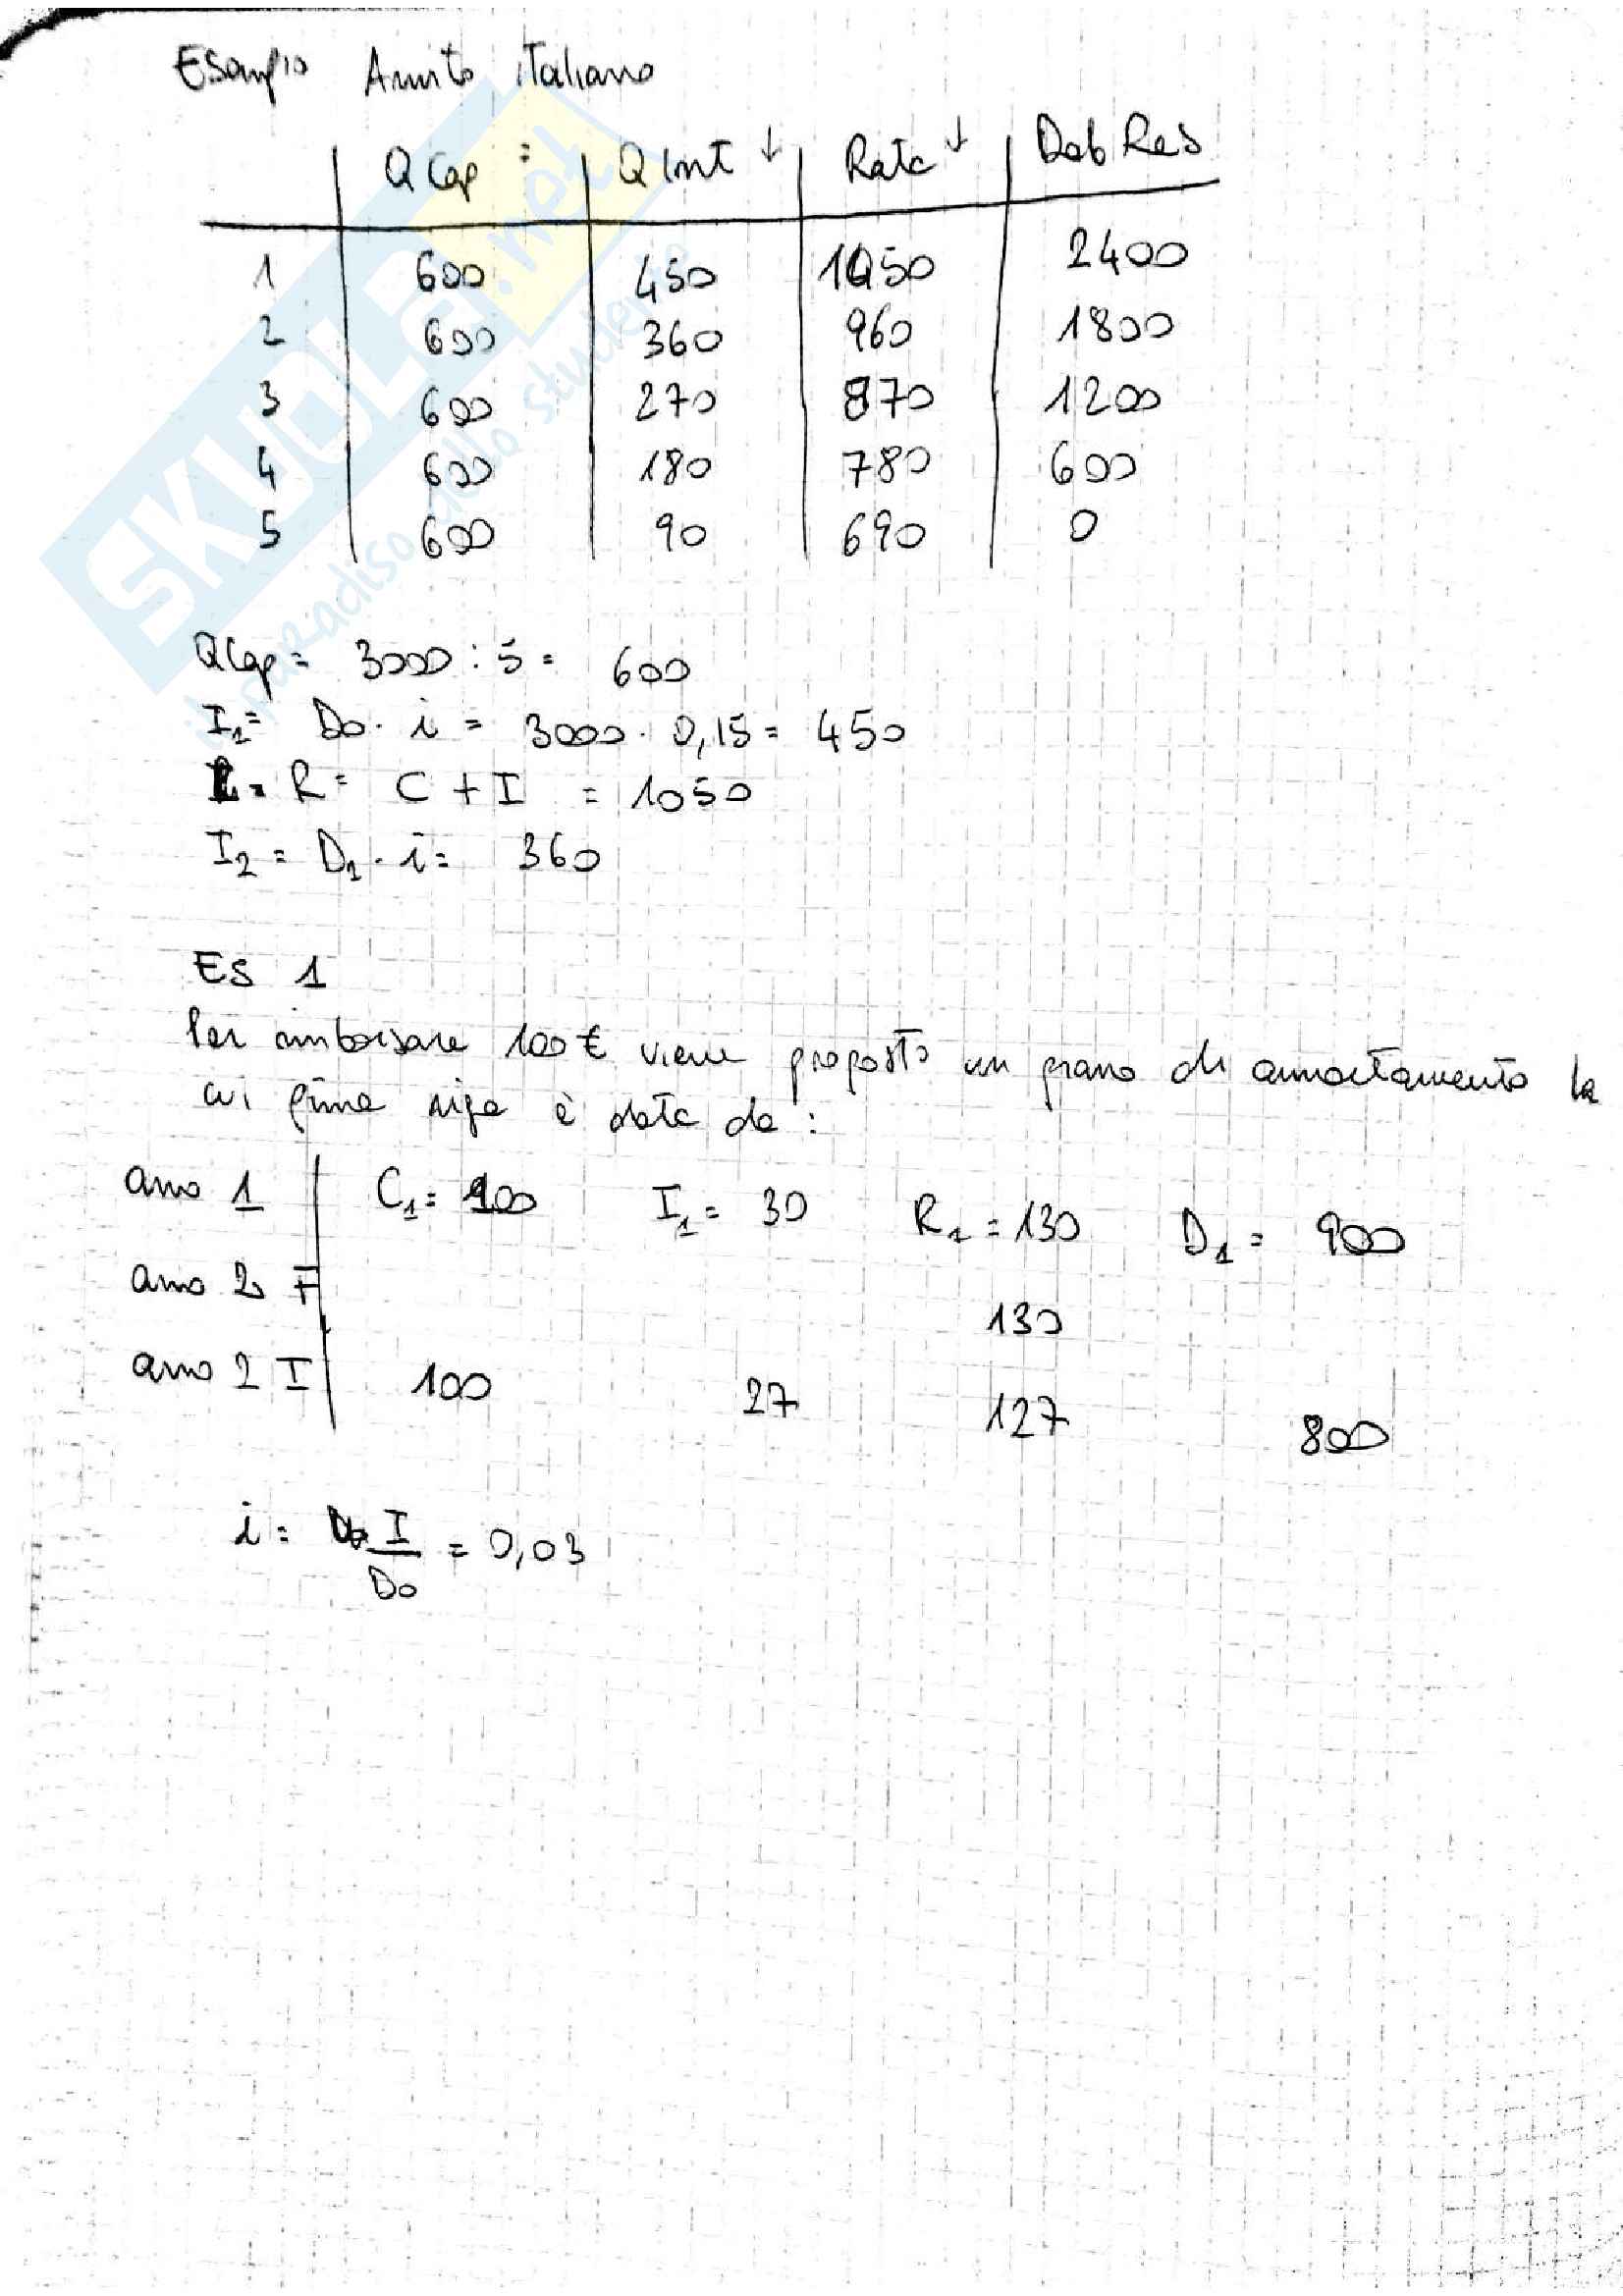 Esempio Amm.to italiano
QCap = QInt ↓ Rata ↓ Deb Res
1 600 450 1050 2400
2 600 360 960 1800
3 600 270 870 1200
4 600 180 780 600
5 600 90 690 0
QCap = 3000 : 5 = 600
I1 = D0 · i = 3000 · 0,15 = 450
R = C + I = 1050
I2 = D1 · i = 360
ES 1
Per rimborsare 100€ viene proposto un piano di ammortamento la
cui prima riga è data da :
anno 1 C1 = 100 I1 = 30 R1 = 130 D1 = 900
anno 2 F 130
anno 2 I 100 27 127 800
i = I/D0 = 0,03
SKUOLA.net
il paradiso dello studente